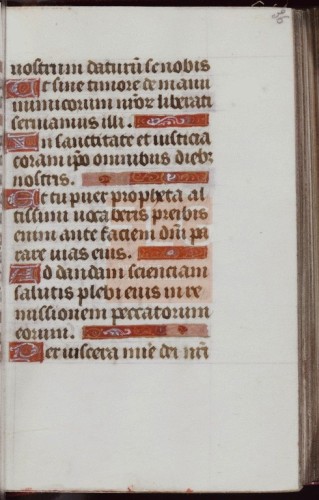 nostrum daturū se nobis
Ut sine timore de manu
inimicorum nr̄or liberati
seruiamus illi.
In sanctitate et iusticia
coram ip̄o omnibus diebꝫ
nostris.
Et tu puer propheta al
tissimi uocaberis preibis
enim ante faciem dn̄i pa
rare uias eius.
Ad dandam scienciam
salutis plebi eius in re
missionem peccatorum
eorum.
Per uiscera mīe dei nr̄i